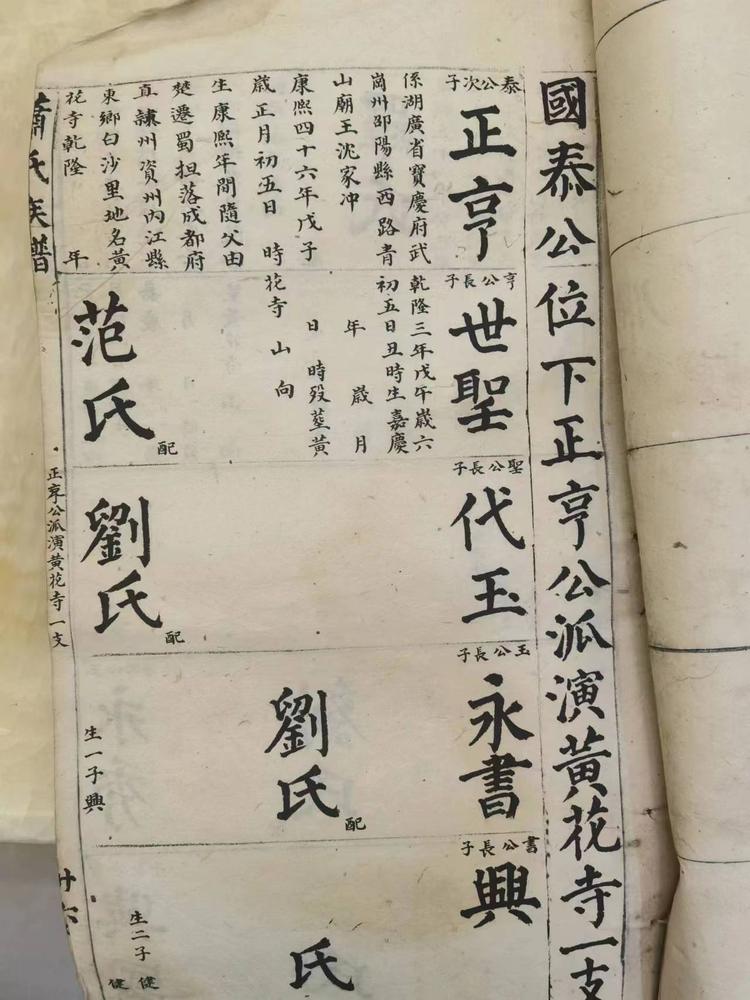 國泰公位下正亨公派演黃花寺一支
泰公次子
正亨
係湖廣省寶慶府武
崗州邵陽縣西路青
山廟王沈家冲
康熙四十六年戊子
歲正月初五日 時
生康熙年間隨父由
楚遷蜀担落成都府
直隷州資州內江縣
東鄉白沙里地名黃
花寺乾隆 年
亨公長子
世聖
乾隆三年戊午歲六
初五日丑時生嘉慶
年 歲 月
日 時歿塟黃
花寺山向
范氏
配
聖公長子
代玉
劉氏
配
玉公長子
永書
劉氏
配
生一子興
書公長子
興
氏
生二子 健
健
蕭氏族譜
正亨公派演黃花寺一支
廿六